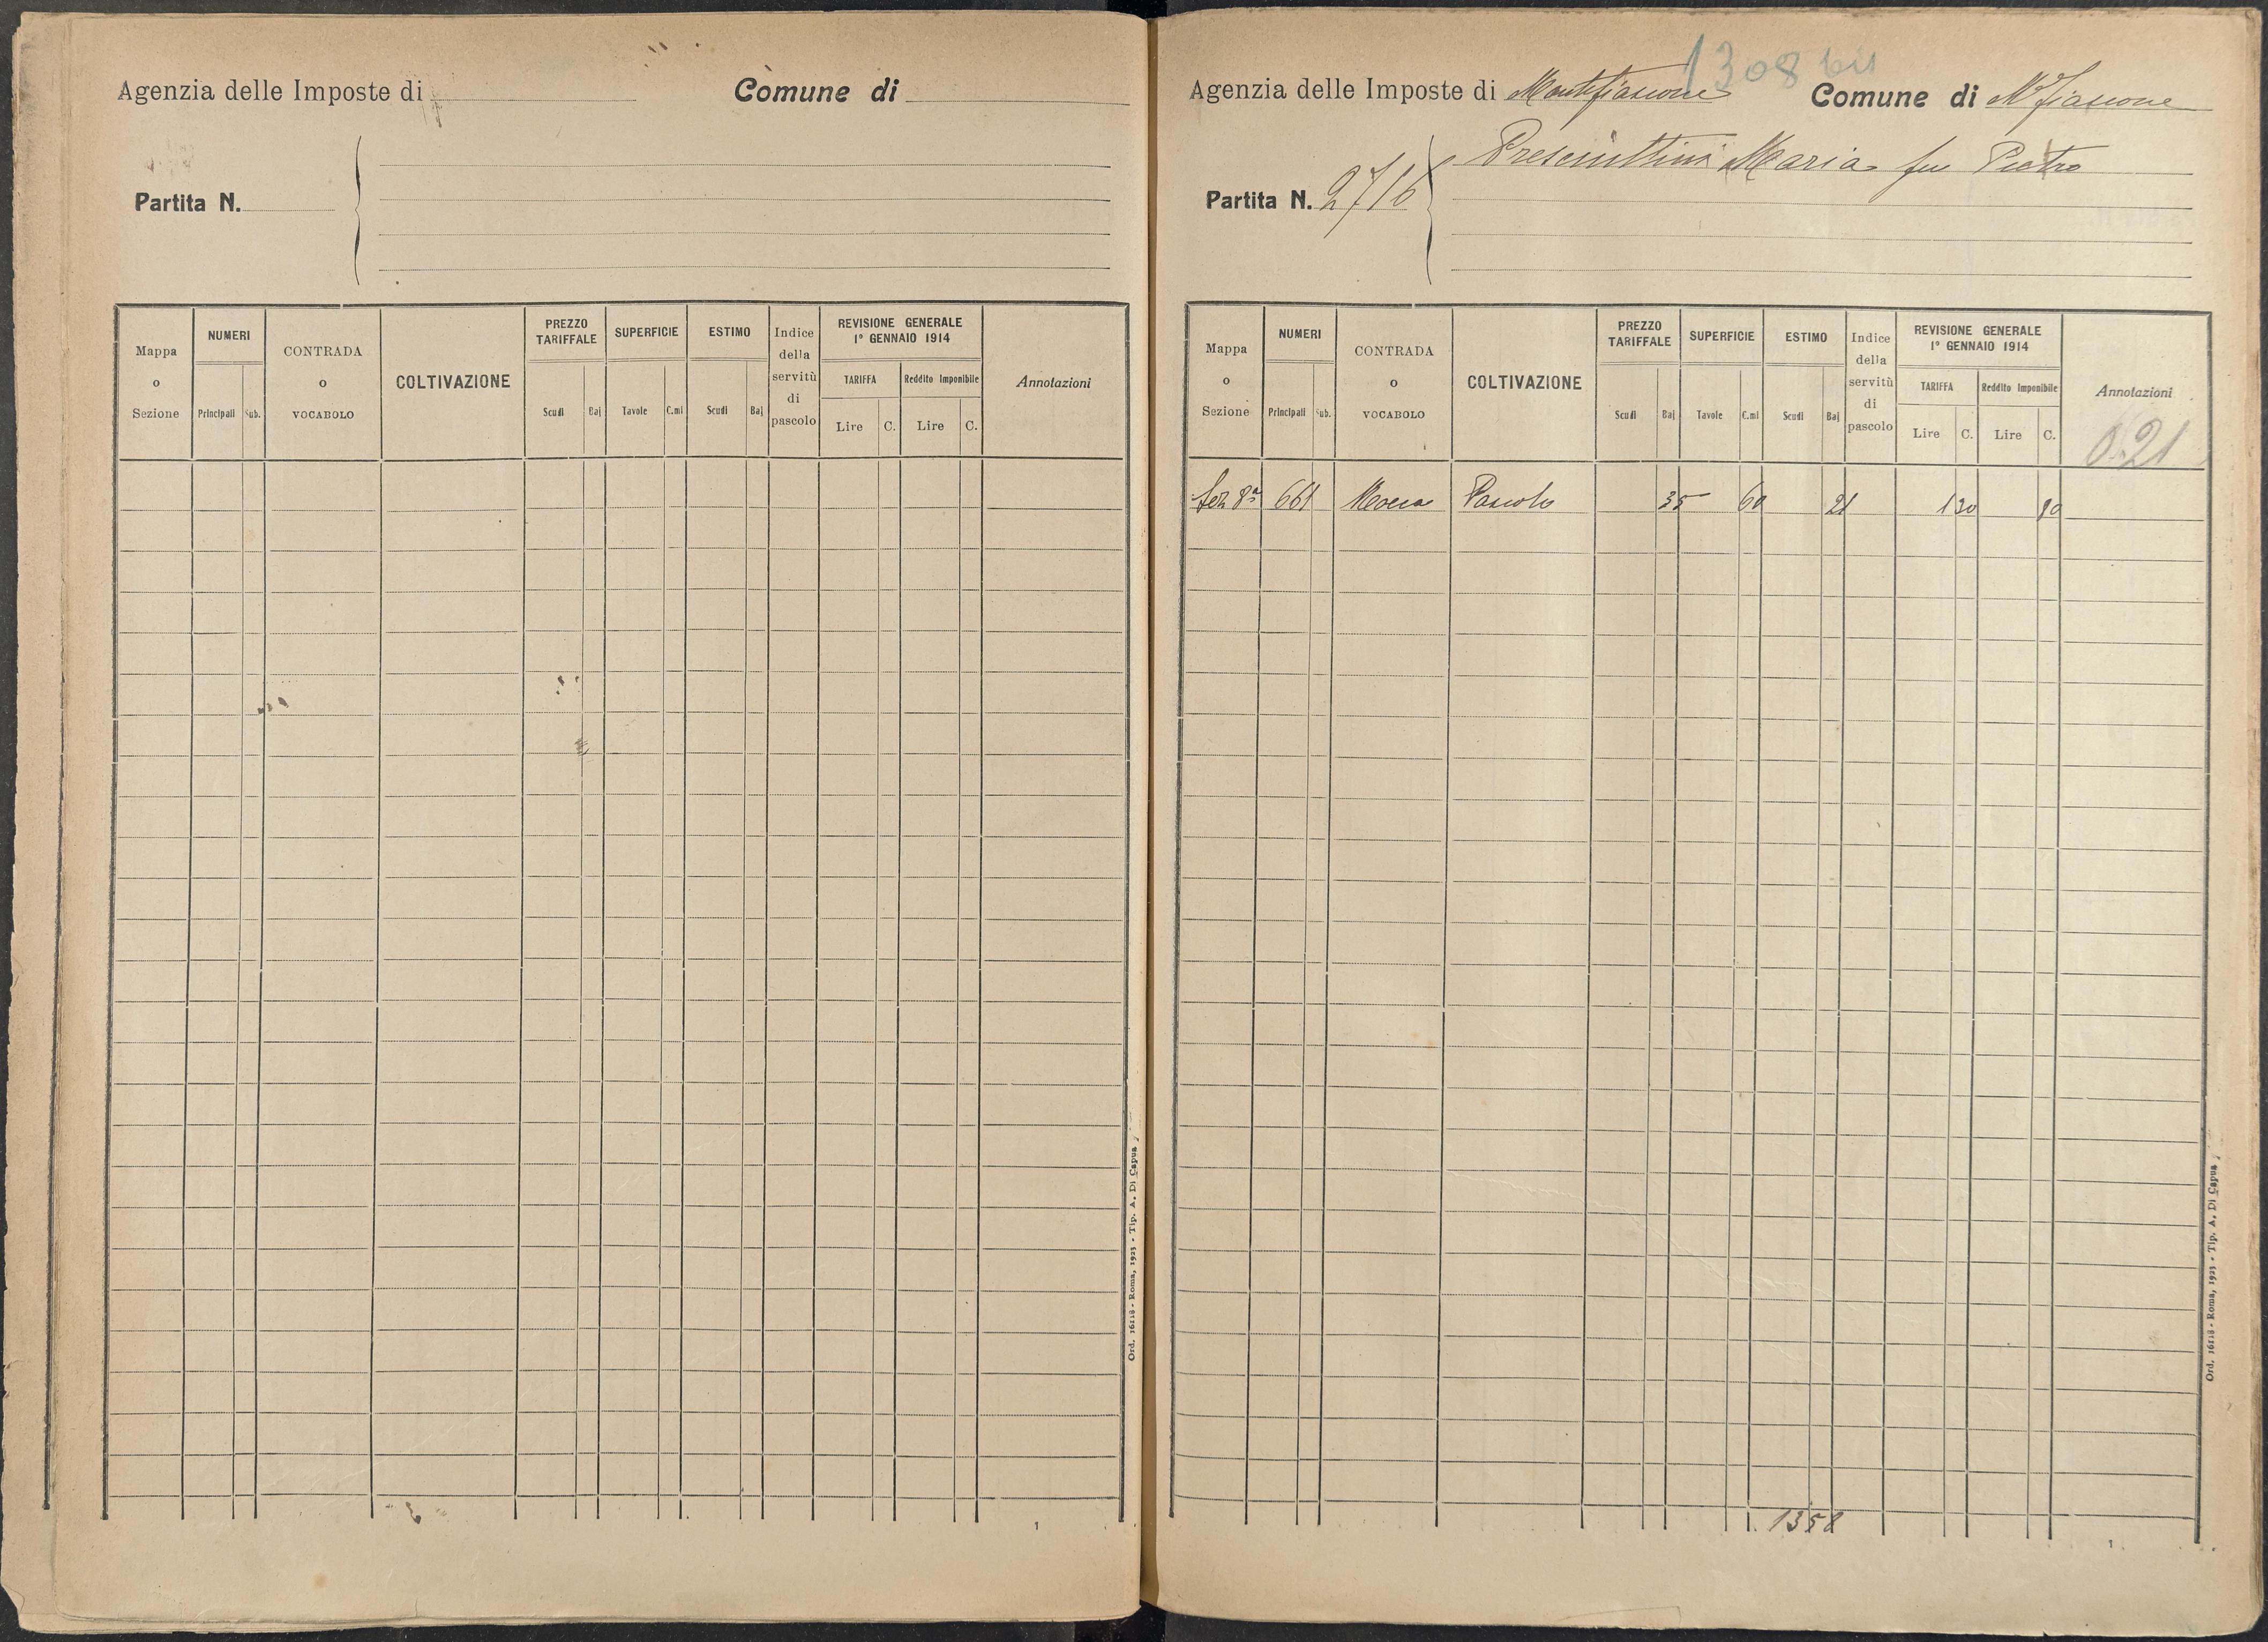 Agenzia delle Imposte di
Comune di
Partita N.
Mappa o Sezione
NUMERI
Principali Sub.
CONTRADA o VOCABOLO
COLTIVAZIONE
PREZZO TARIFFALE
Scudi Baj
SUPERFICIE
Tavole C.mi
ESTIMO
Scudi Baj
Indice della servitù di pascolo
REVISIONE GENERALE
1° GENNAIO 1914
TARIFFA
Lire C.
Reddito Imponibile
Lire C.
Annotazioni
Ord. 16118 - Roma, 1923 - Tip. A. Di Capua
1
1308 bis
Agenzia delle Imposte di Montefiascone
Comune di M. Fiascone
Partita N. 2716
Presciuttini Maria fu Pietro
Mappa o Sezione
NUMERI
Principali Sub.
CONTRADA o VOCABOLO
COLTIVAZIONE
PREZZO TARIFFALE
Scudi Baj
SUPERFICIE
Tavole C.mi
ESTIMO
Scudi Baj
Indice della servitù di pascolo
REVISIONE GENERALE
1° GENNAIO 1914
TARIFFA
Lire C.
Reddito Imponibile
Lire C.
Annotazioni
0.21
Sez 8ª 661 Pascolo 35 60 21 130 80
1358
1
Ord. 16118 - Roma, 1923 - Tip. A. Di Capua